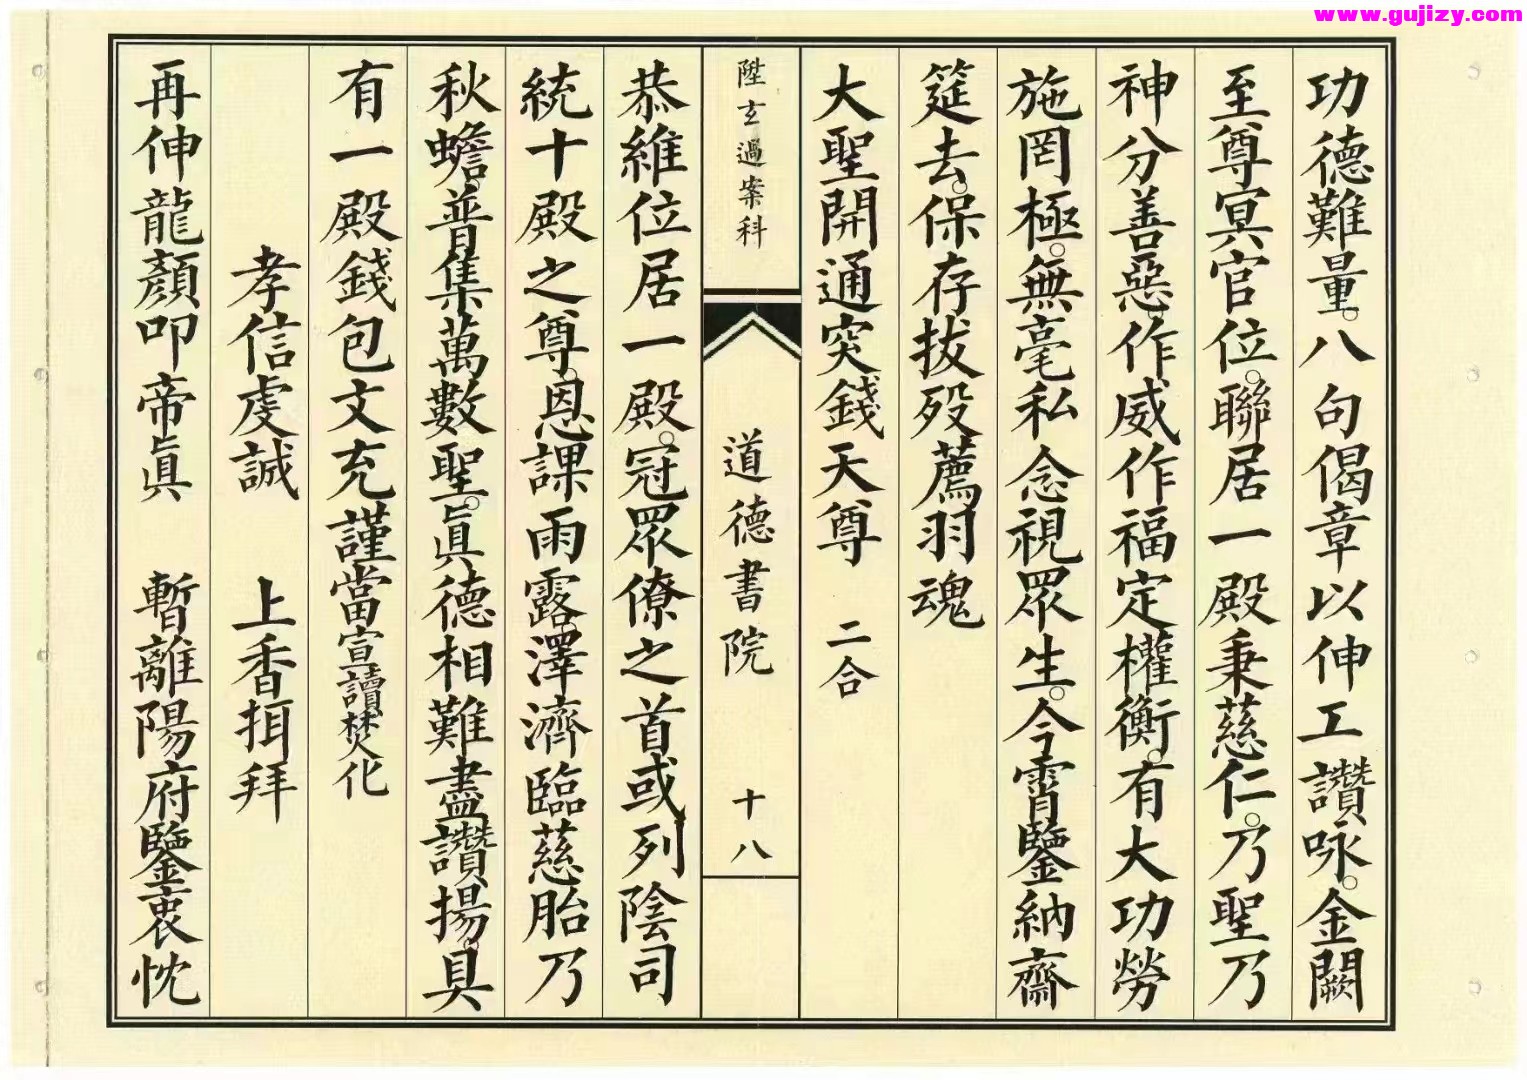 www.gujizy.com
功德難量。八句偈章以伸工讚咏。金闕
至尊冥官位。聯居一殿秉慈仁。乃聖乃
神分善惡。作威作福定權衡。有大功勞
施罔極。無毫私念視眾生。今霄鑒納齋
筵去。保存拔歿薦羽魂
大聖開通突錢天尊 二合
陞玄過案科 道德書院 十八
恭維位居一殿。冠眾僚之首或列陰司
統十殿之尊。恩課雨露。澤濟臨慈胎乃
秋蟾。普集萬數聖。眞德相難盡讚揚。具
有一殿錢包文充謹當宣讀焚化
孝信虔誠 上香揖拜
再伸龍顏叩帝眞 暫離陽府鑒衷忱